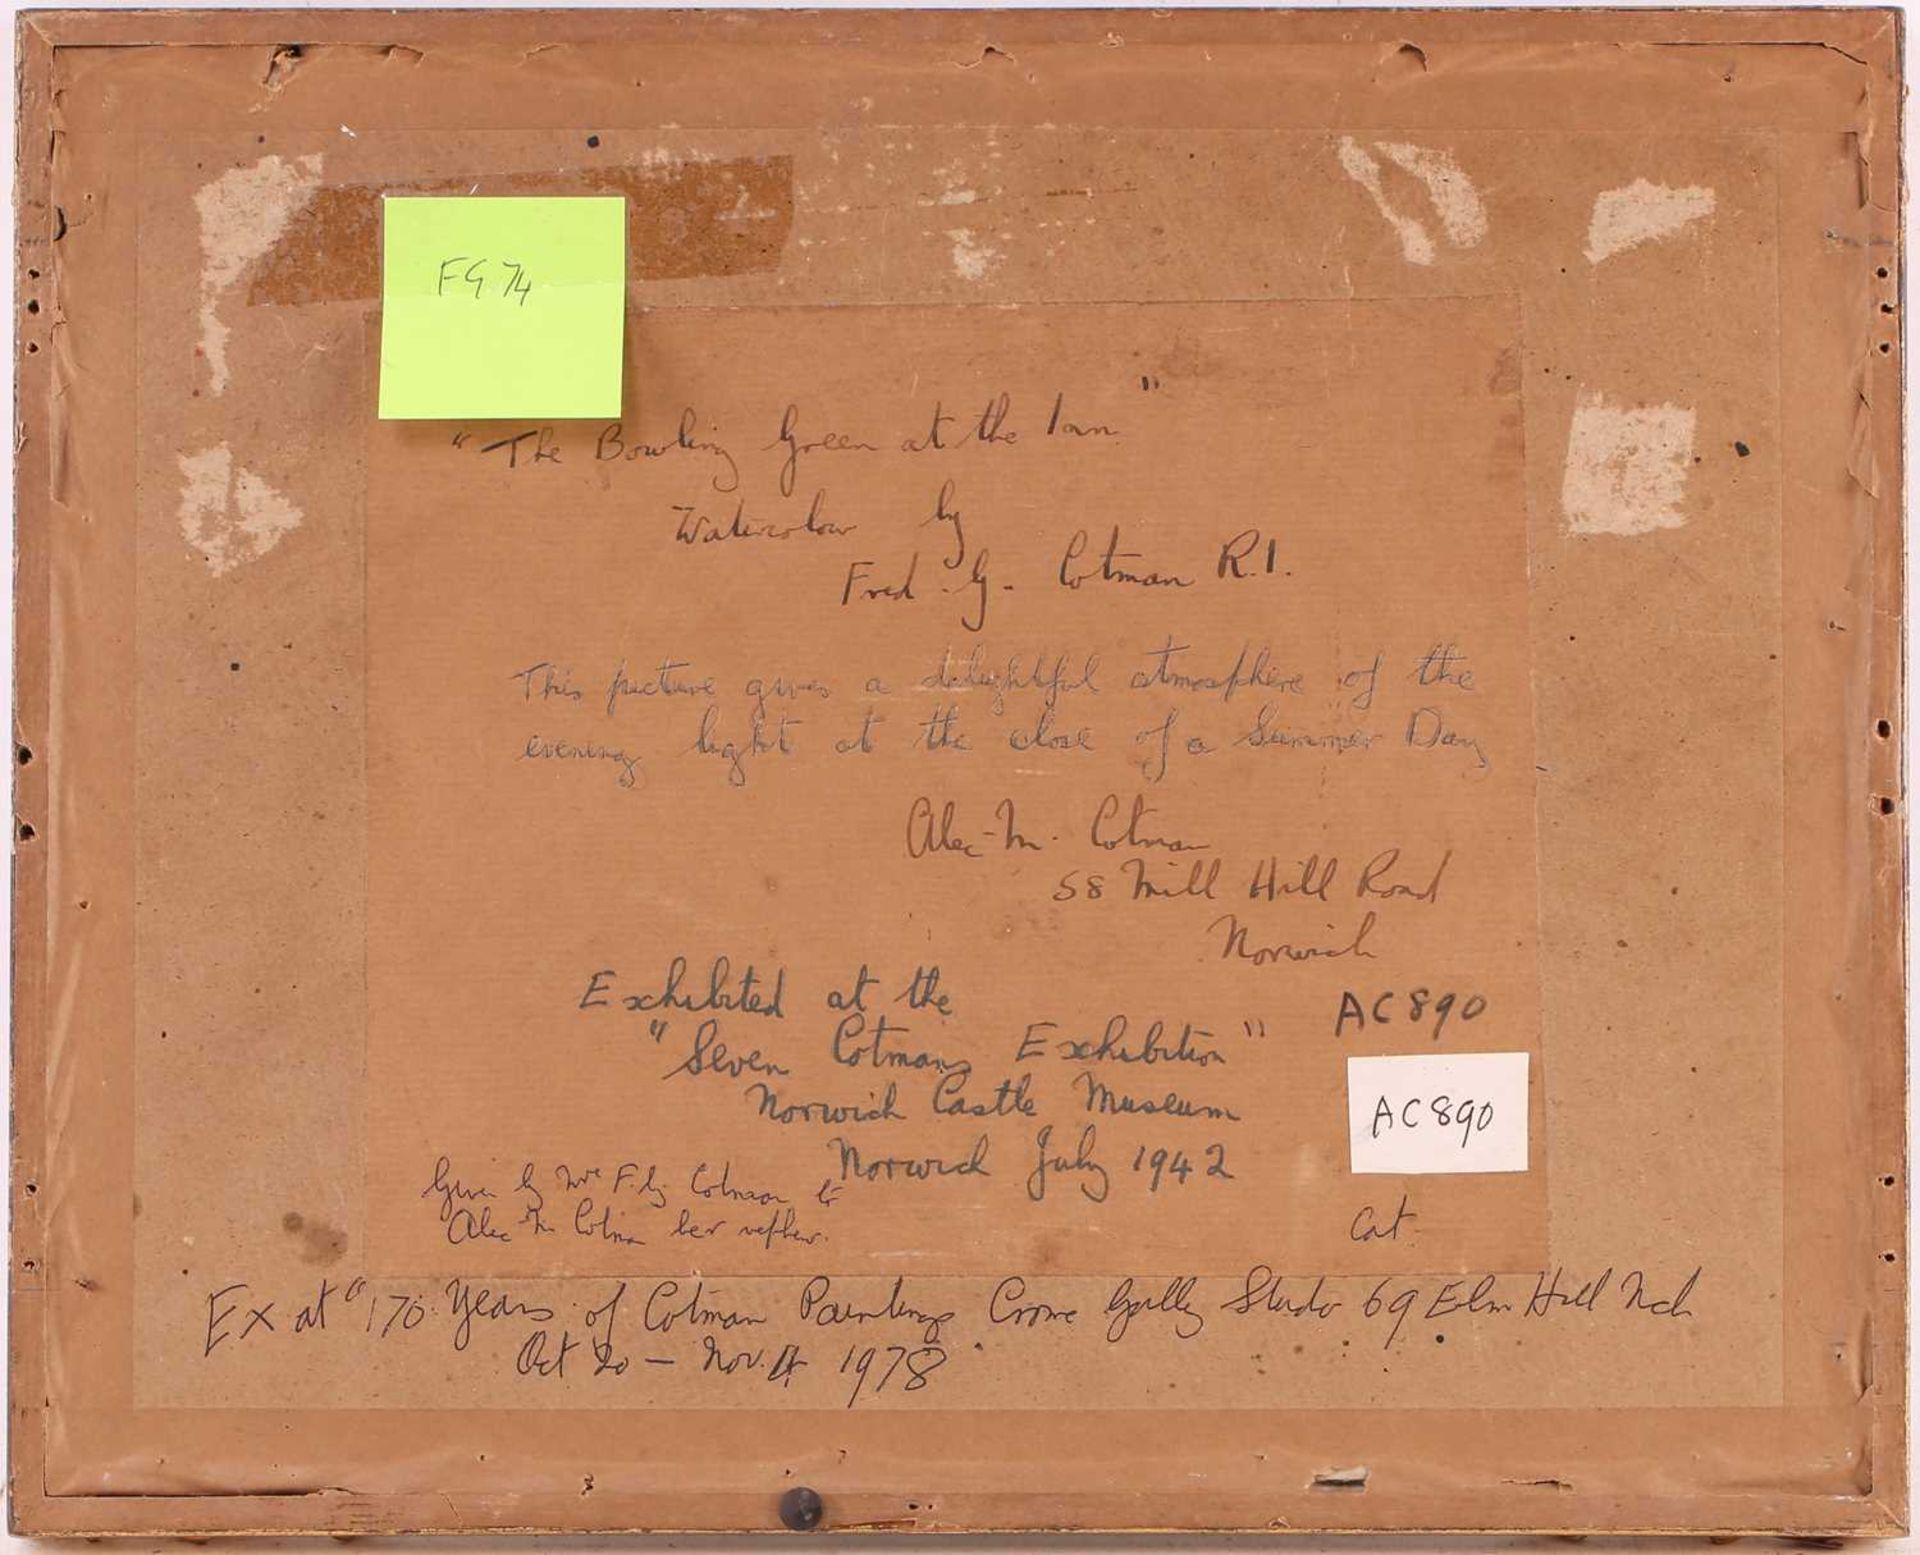 FG 74
"The Bowling Green at the Inn"
Watercolour by
Fred. G. Cotman R.I.
This picture gives a delightful atmosphere of the
evening light at the close of a Summer Day
Alec. M. Cotman
58 Mill Hill Road
Norwich
Exhibited at the
"Seven Cotmans Exhibition"
Norwich Castle Museum
Norwich July 1942
AC890
AC890
Cat.
Given by Mrs F. G. Cotman to
Alec M Cotman her nephew.
Ex at "170 Years of Cotman Paintings Crome Gally Studio 69 Elm Hill Nch
Oct 20 - Nov. 1978